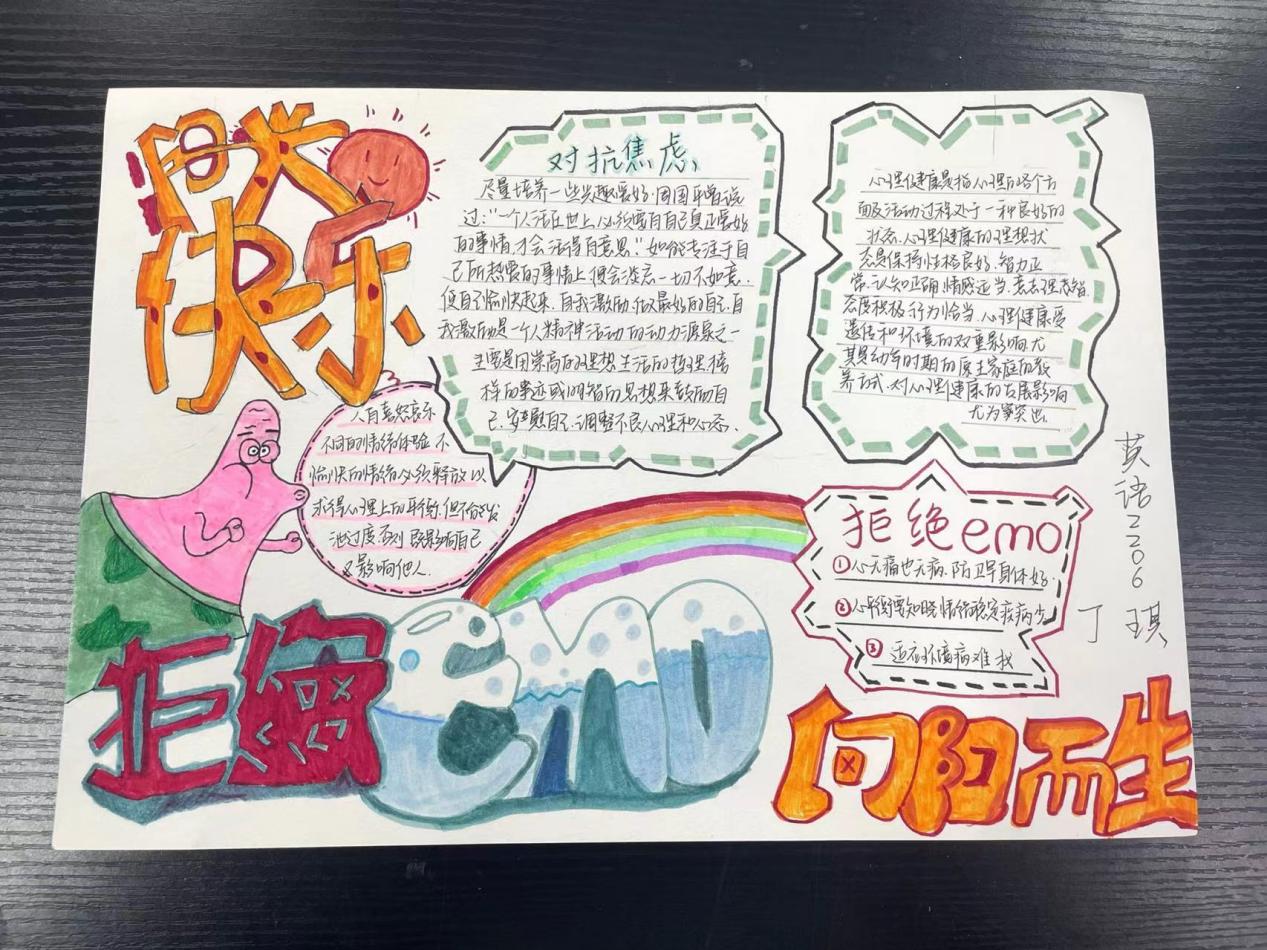 阳光
快乐
对抗焦虑
尽量培养一些兴趣爱好.周国平曾说
过:"一个人活在世上,必须要有自己真正爱好
的事情,才会活得有意思."如能专注于自
己所热爱的事情上,便会淡忘一切不如意.
使自己愉快起来.自我激励,做最好的自己.自
我激励是一个人精神活动的动力源泉之一
主要是用崇高的理想.生活的哲理.榜
样的事迹或明智的思想来鼓励自
己.安慰自己.调整不良心理和心态.
心理健康是指心理的各个方
面及活动过程处于一种良好的
状态.心理健康的理想状
态是保持性格良好.智力正
常.认知正确.情感适当.意志理智.
态度积极.行为恰当.心理健康受
遗传和环境的双重影响.尤
其是幼年时期的原生家庭的教
养方式.对心理健康的发展影响
尤为突出.
人有喜怒哀乐
不同的情绪体验.不
愉快的情绪必须释放.以
求得心理上的平衡.但不能发
泄过度.否则.既影响自己
又影响他人.
拒绝emo
①心无痛也无病.防卫早身体好.
②心平衡要知晓.情绪稳定疾病少.
③适应环境病难找
英语2206
丁琪
拒绝
emo
向阳而生